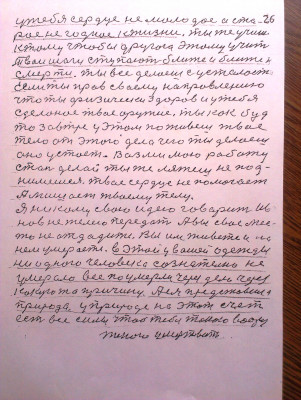 у тебя сердце не молодое и ста- 26
рое не годное к жизни. Ты же учиш
к тому чтобы другой этому учить
Твои шаги ступают ближе и ближе к
смерти. ты все делаеш с усталости
Если ты прав своему направлению
что ты физически здоров и у тебя
сделоное твое оружие, ты как буд
то завтра у этом поживеш твае
тело от этого дела чего ты делаеш
оно устает. Возьми мою работу
стан делай ты же ляжеш не под-
нимешся. твае сердце не помогает
А мешает твоему телу.
Я никому свою идею говорит Ив-
нов не могу передать А вы свае мес-
то не отдадите. Вы им живете и на
нем умираете. в Этой у вашей одежды
ни одного человека сознательно не
умерало все поумерли через дела через
какую то причину. А
природа у природе на этот счет
ест все силы чтоб тебя